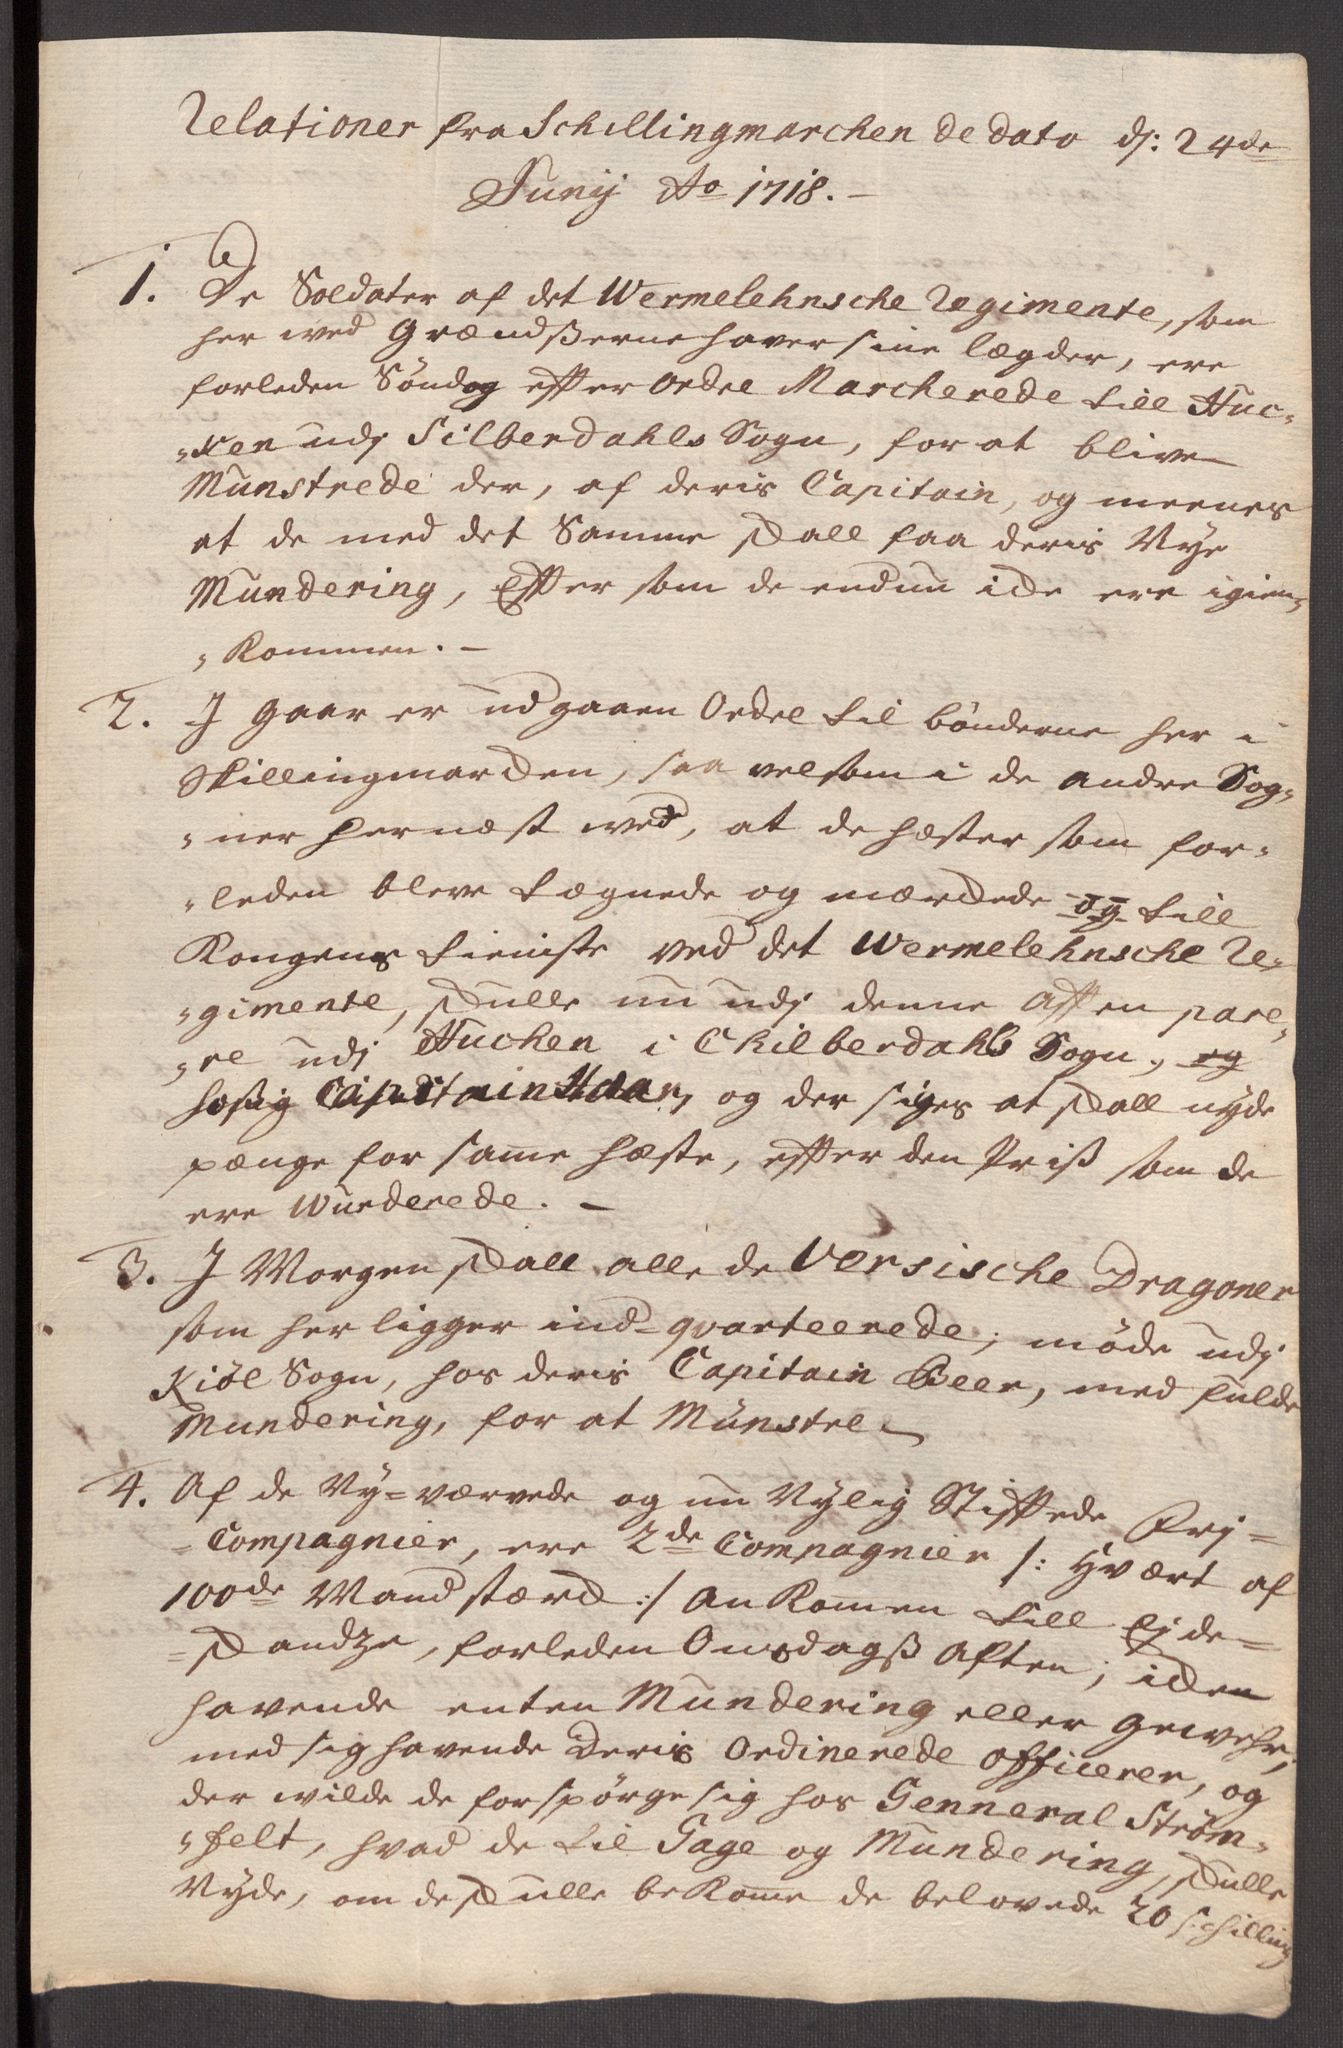 Relationer fra Schillingmarchen de dato d: 24de
Junij Ao 1718.
1. De Soldater af det Wermelehnsche Regimente, som
her wed Grændsserne haver sine lægder, ere
forleden Søndag effter Ordre Marcherede till Huc-
-ken udj Silberdahls Sogn, for at blive
Munstrede der, af deris Capitain, og meenes
at de med det Samme skall faa deris Nye
Mundering, Effter som de endnu icke ere igien-
-kommen. -
2. I Gaar er udgaaen Ordre til bønderne her i
Skillingmarcken, saa velsom i de andre Sog-
-ner hernæst wed, at de hæster som for-
-leden bleve tægnede og mærckede og till
Kongens tieniste ved det Wermelehnsche Re-
-gimente, skulle nu udj denne Afften pare-
-re udj Huchen i Chilberdahls Sogn, og
hossig Capitain Haar, og der siges at skall nyde
pænge for same hæste, effter den Priss som de
ere Wurderede. -
3. I Morgen skall alle de Versische Dragoner
som her ligger ind-qvarteerede, møde udj
Kiøl Sogn, hos deris Capitain Beer, med fulde
Mundering, for at Münstre
4. Af de Ny-værvede og nu Nylig Stifftede Frj-
-Compagnier, ere 2de Compagnier /: Hvært af
100de Mand stærck :/ Ankomen till Ejde-
-skandze, forleden Onsdagss Aften; icken
havende enten Mundering eller Gewehr,
med sig havende Deris Ordinerede Officerer, og
der wilde de forspørge sig hos Genneral Strøm-
-felt, hvad de til Gage og Mundering, skulle
Nyde, om de skulle bekome de belovede 20 schilling